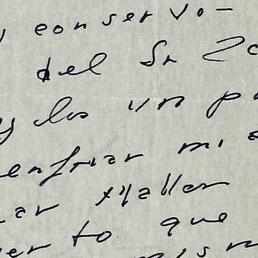 y conservo-
del Sr Zo
y los un p
enfriar mi
ar taller
er to que